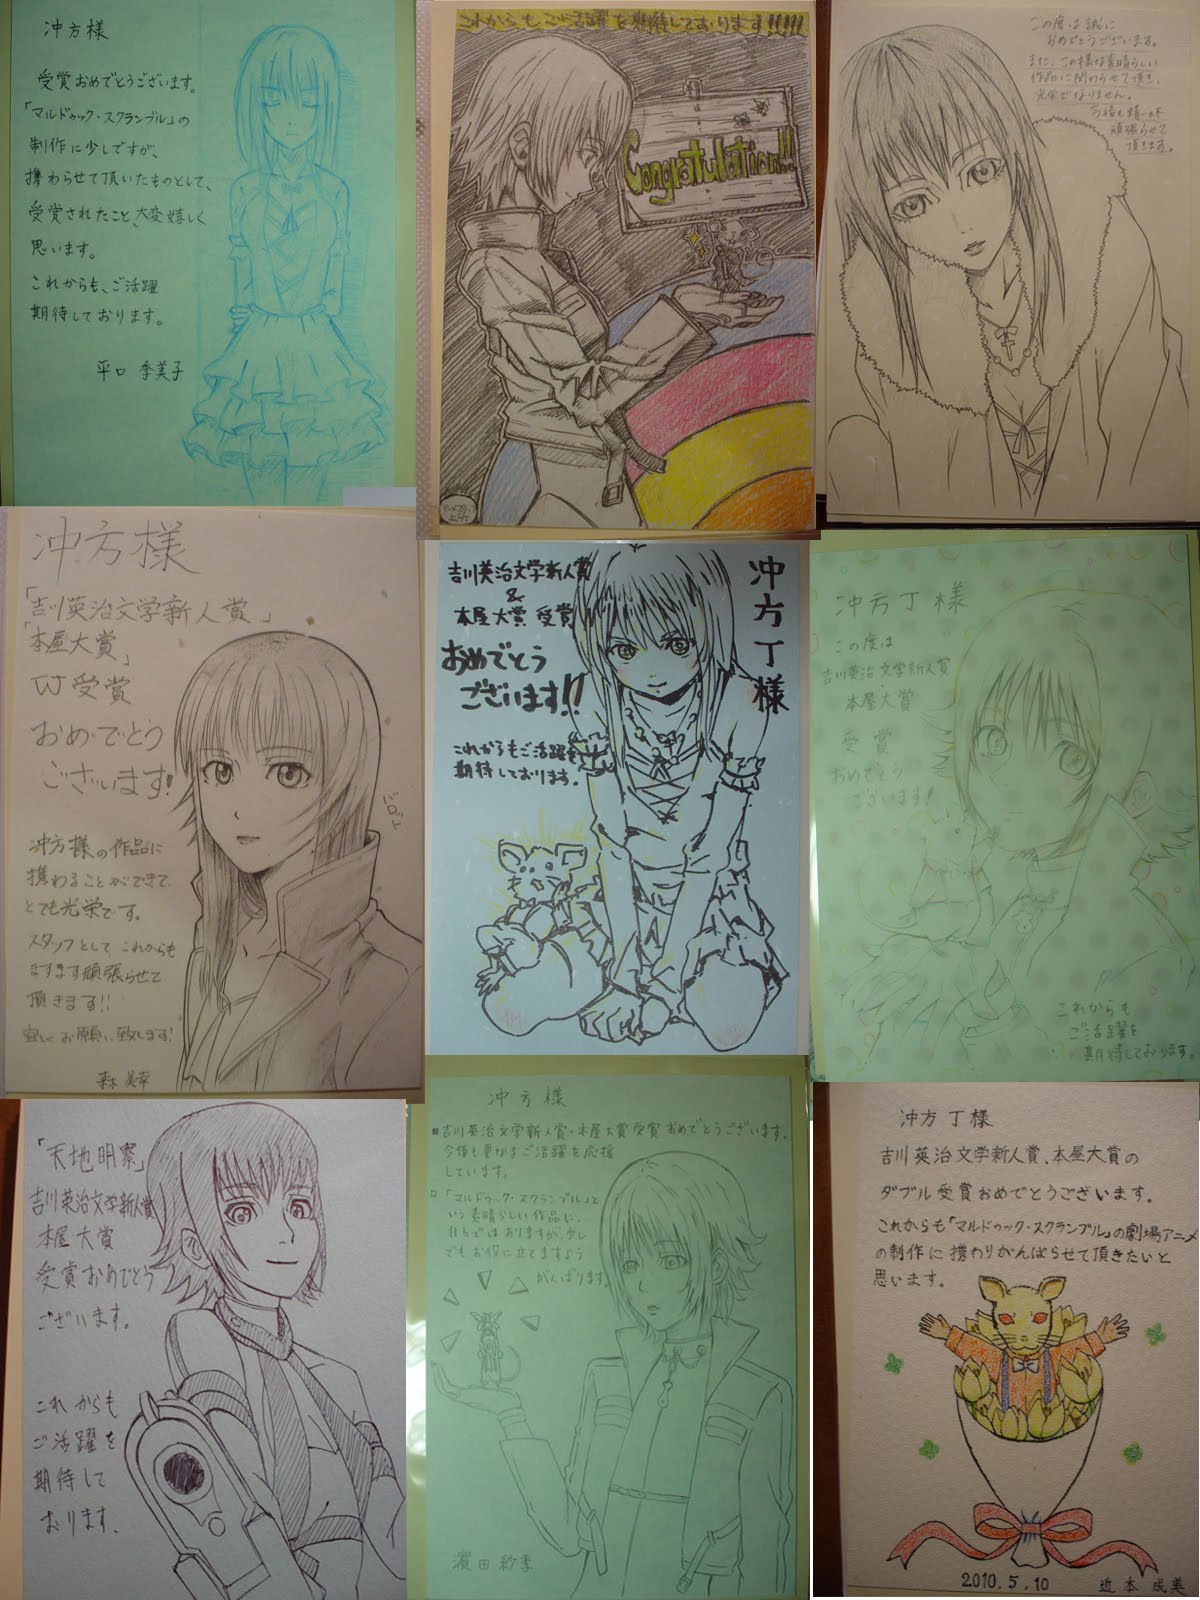 冲方様
受賞おめでとうございます。
「マルドゥック・スクランブル」の
制作に少しですが、
携わらせて頂いたものとして、
受賞されたこと、大変嬉しく
思います。
これからも、ご活躍
期待しております。
平口 季美子
これからもご活躍を期待しております!!!!!
Congratulation!!
この度は誠に
おめでとうございます。
また、この様な素晴らしい
作品に関わらせて頂き、
光栄でなりません。
今後も精一杯
頑張らせて
頂きます。
冲方様
「吉川英治文学新人賞」
「本屋大賞」
W受賞
おめでとう
ございます!
冲方様の作品に
携わることができて
とても光栄です。
スタッフとして これからも
ますます頑張らせて
頂きます!!
宜しくお願い致します!
冲方丁様
吉川英治文学新人賞
&
本屋大賞 受賞
おめでとう
ございます!!
これからもご活躍を
期待しております。
冲方丁様
この度は
吉川英治文学新人賞
本屋大賞
受賞
おめでとう
ございます!
これからも
ご活躍を
期待しております。
「天地明察」
吉川英治文学新人賞
本屋大賞
受賞おめでとう
ございます。
これからも
ご活躍を
期待して
おります。
冲方様
吉川英治文学新人賞・本屋大賞受賞おめでとうございます。
今後も更なるご活躍を応援
しています。
「マルドゥック・スクランブル」と
いう素晴らしい作品に、
ではありますが、少し
でもお役に立てますよう
がんばります。
濱田 紗季
冲方丁様
吉川英治文学新人賞、本屋大賞の
ダブル受賞おめでとうございます。
これからも「マルドゥック・スクランブル」の劇場アニメ
の制作に携わりがんばらせて頂きたいと
思います。
2010.5.10
近本 成美